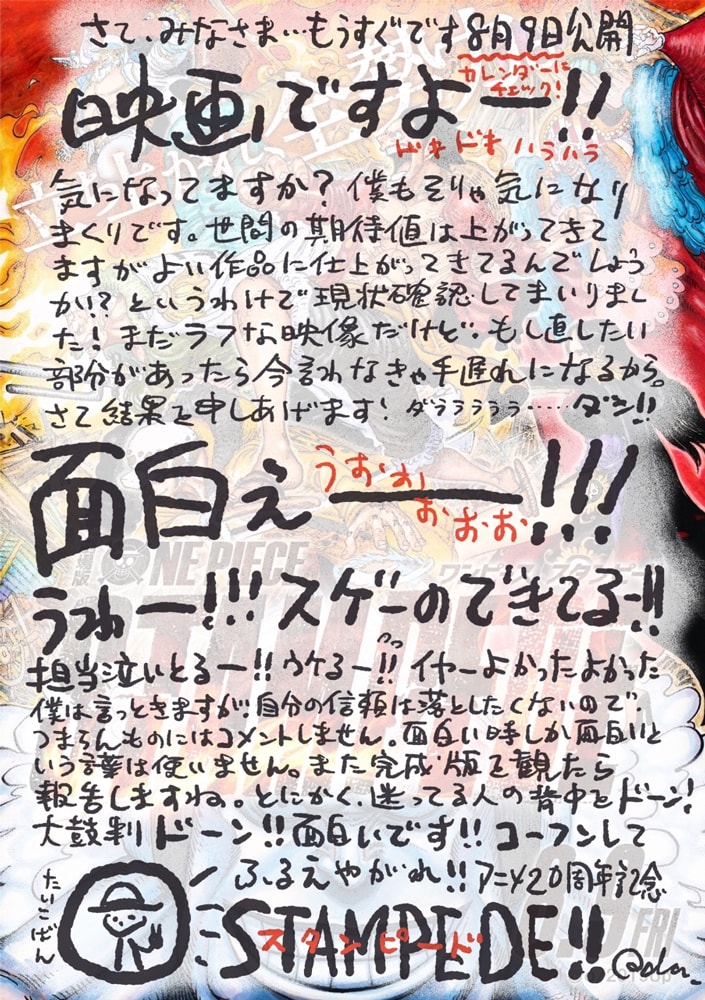 さて、みなさま…もうすぐです8月9日公開
カレンダーに
チェック!
映画ですよー!!
ドキドキハラハラ
気になってますか?僕もそりゃ気になり
まくりです。世間の期待値は上がってきて
ますがよい作品に仕上がってきてるんでしょう
か!?というわけで現状確認してまいりまし
た!まだラフな映像だけど、もし直したい
部分があったら今言わなきゃ手遅れになるから。
さて結果を申しあげます!ダララララ……ダン!!
面白えーー!!!
うおおおおお
ONE PIECE
うわー!!!スゲーのできてるー!!
担当泣いとるー!!ウケるー!!イヤーよかったよかった
僕は言っときますが、自分の信頼は落としたくないので、
つまらんものにはコメントしません。面白い時しか面白いと
いう言葉は使いません。また完成版を観たら
報告しますね。とにかく、迷ってる人の背中をドーン!
太鼓判ドーン!!面白いです!!コーフンして
ふるえやがれ!!アニメ20周年記念
たいこばん
STAMPEDE!!
スタンピード
FRI